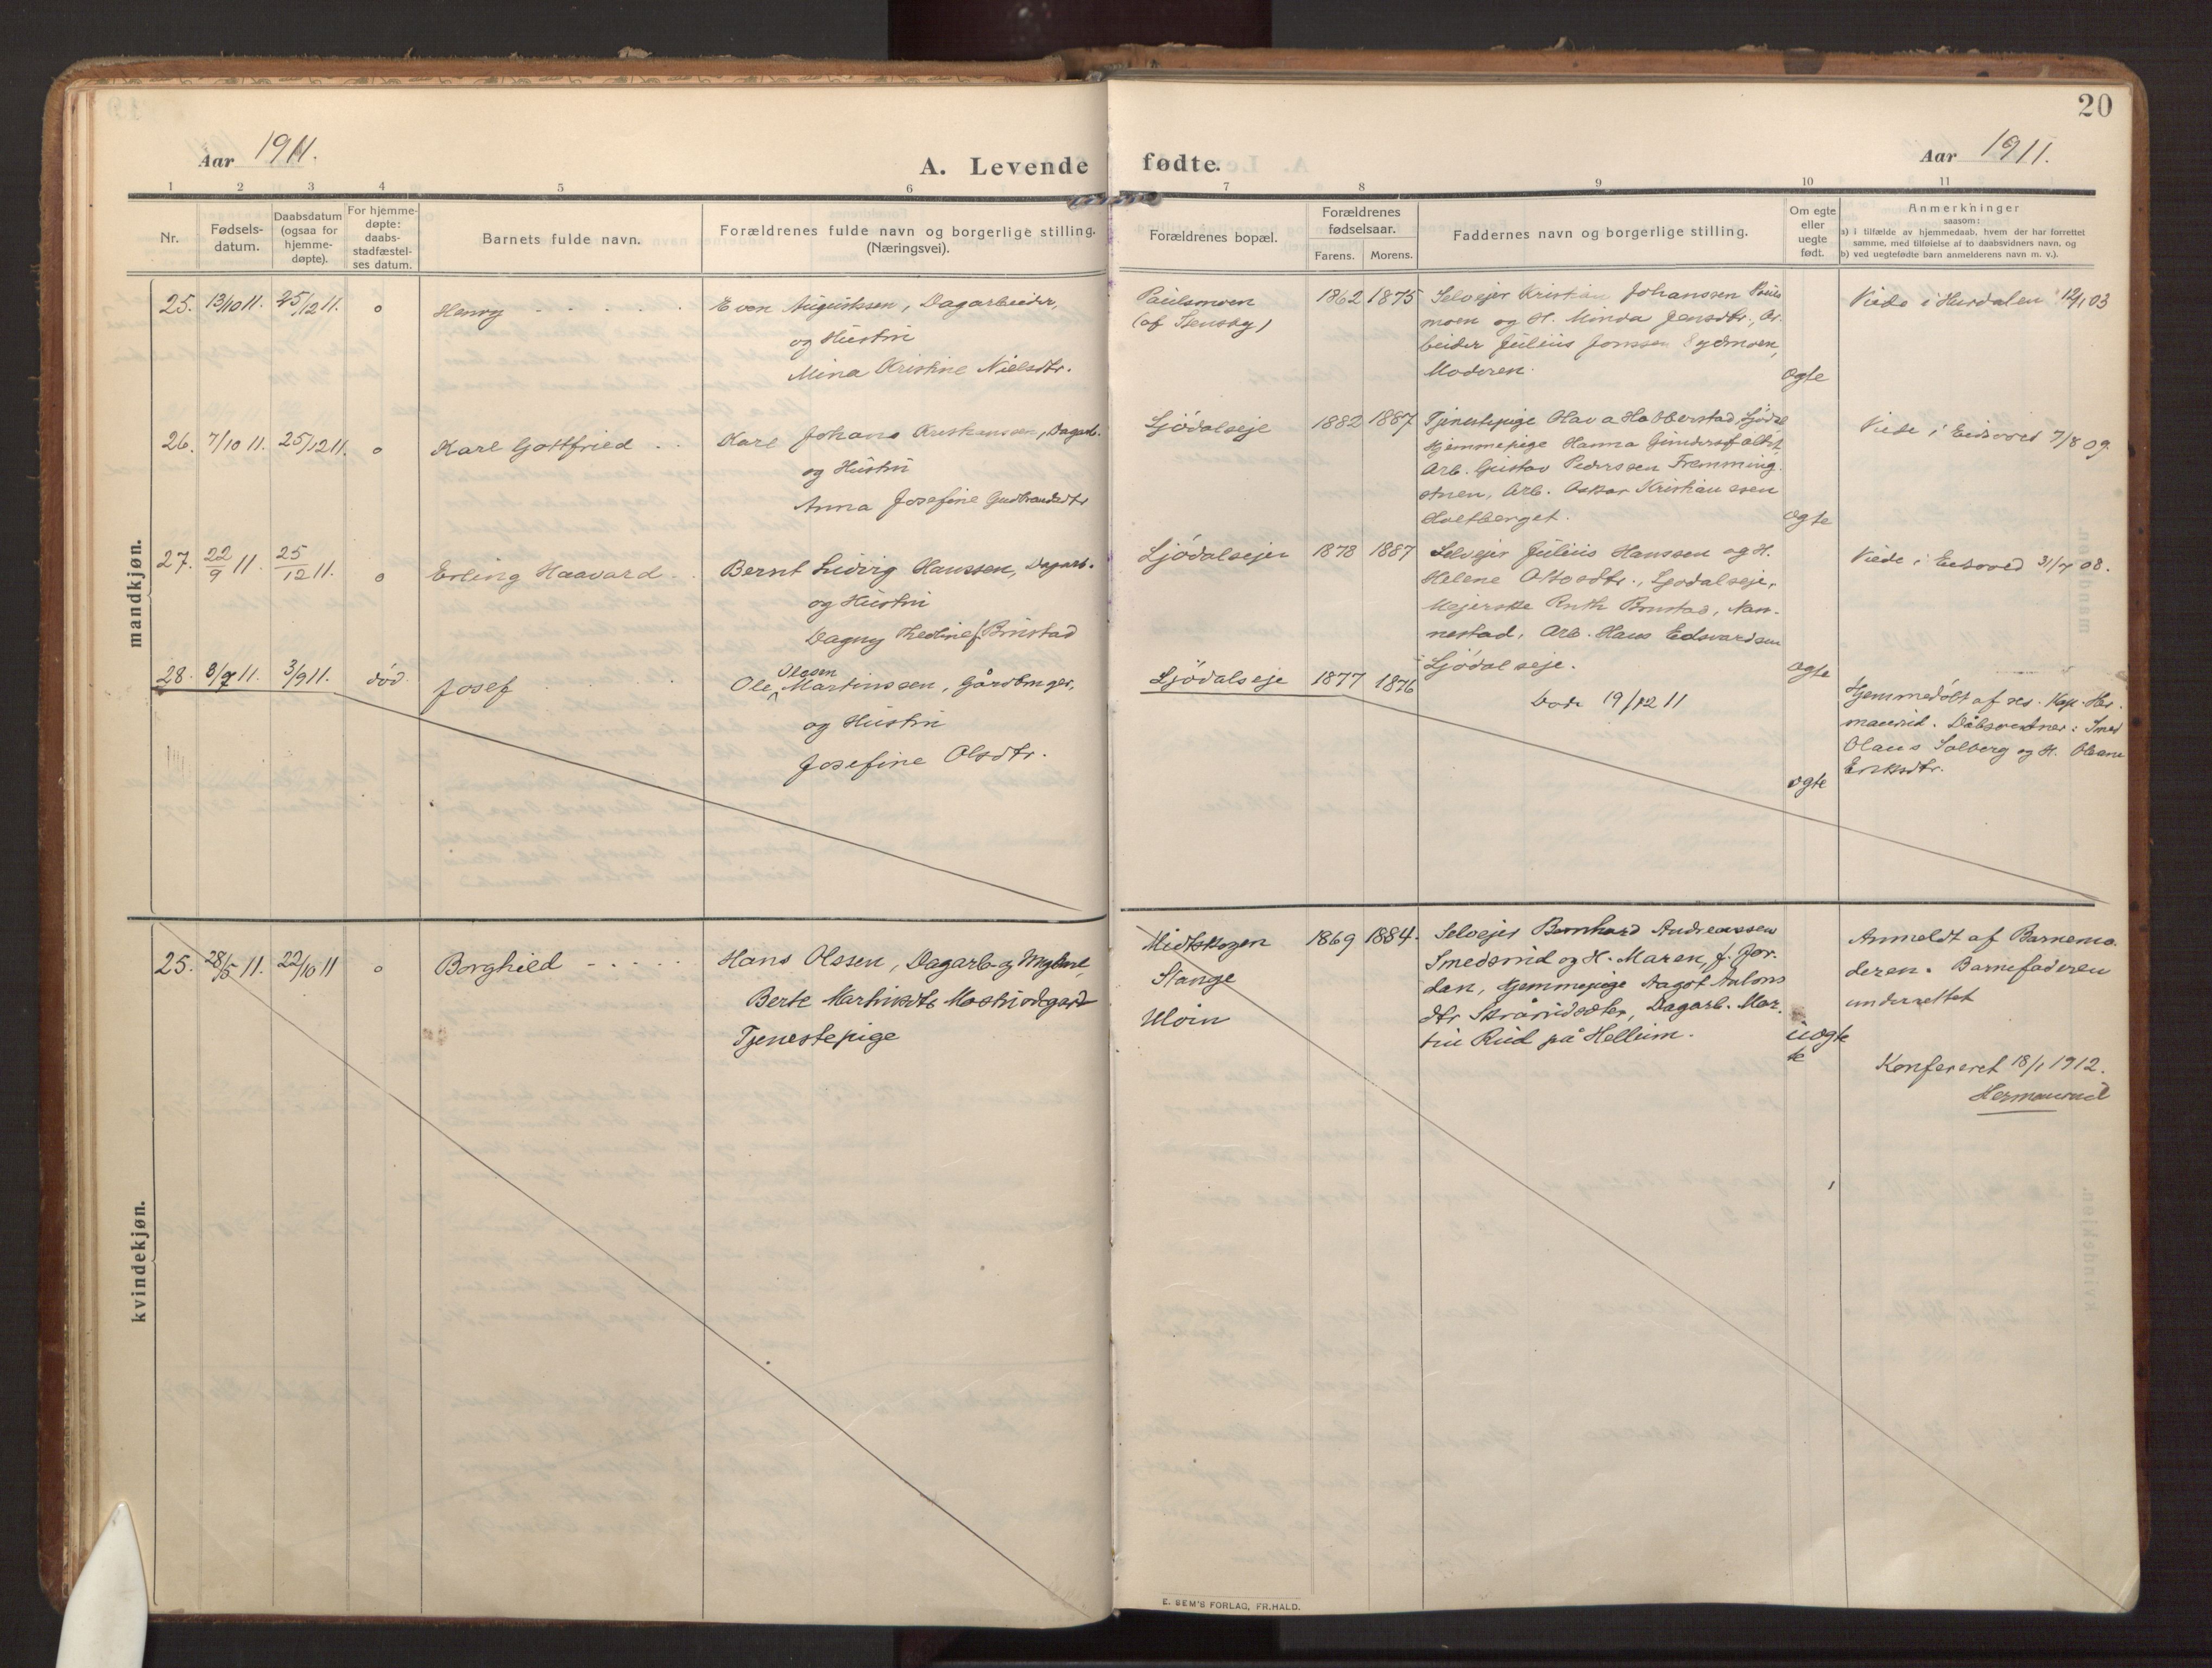 20
Aar 1911.
A. Levende fødte.
Aar 1911.
1 2 3 4 5 6 7 8 9 10 11
Nr.
Fødsels-
datum.
Daabsdatum
(ogsaa for
hjemme-
døpte).
For hjemme-
døpte:
daabs-
stadfæstel-
ses datum.
Barnets fulde navn.
Forældrenes fulde navn og borgerlige stilling.
(Næringsvei).
Forældrenes bopæl.
Forældrenes
fødselsaar.
Farens. Morens.
Faddernes navn og borgerlige stilling.
Om egte
eller
uegte
født.
Anmerkninger
saasom:
a) i tilfælde av hjemmedaab, hvem der har forrettet
samme, med tilføielse af to daabsvidners navn, og
b) ved uegtefødte barn anmelderens navn m. v.).
mandkjøn.
25. 13/10 11. 25/12 11. o Henry
Even Augustssen, Dagarbeider,
og Hustru
Mina Kristine Nielsdtr.
Paulsmoen
(af Stensby)
1862 1875
Selvejer Kristian Johanssen Pauls
moen og H. Minda Jensdtr., Ar-
beider Julius Jonssen Sydmoen,
Moderen.
ægte
Viede i Hurdalen 12/1 03
26. 7/10 11. 25/12 11. o Karl Gottfried
Karl Johans Kristianssen, Dagarb.
og Hustru
Anna Josefine Gudbrandsdtr
Ljødalseje
1882 1887
Tjenestepige Hava Habberstad, Ljødal
Hjemmepige Hanna
Arb. Gustav Pederssen Fremming
Arb. Oskar Kristianssen
Holtberget.
ægte
Viede i Eidsvold 7/8 09.
27. 22/9 11. 25/12 11. o Erling Haavard
Bernt Ludvig Hanssen, Dagarb.
og Hustru
Dagny f. Brustad
Ljødalsejer
1878 1887
Selvejer Julius Hanssen og H.
Helene Olsdtr., Ljødalseje,
Mejerske Ruth Brustad, Nan-
nestad, Arb. Hans Edvardsen
Ljødalseje.
ægte
Viede i Eidsvold 31/7 08.
28. 8/7 11. 3/9 11. død. Josef
Olesen
Ole Martinssen, Gårdbruger,
og Hustru
Josefine Olsdtr.
Ljødalseje
1877 1876
Døde 19/12 11
ægte
Hjemmedøbt af res. Kap. Her-
mansrud. Dåbsvidner: Smed
Olaus Solberg og H. Oleane
Eriksdtr.
kvindekjøn.
25. 28/5 11. 22/10 11 o Borghild
Hans Olssen, Dagarb. og Ungkarl
Berte Martinsdtr.
Tjenestepige
Midtskogen
Stange
Uloin
1869 1884.
Selvejer Bernhard Andreassen
Smedsrud og H. Maren, f. Jor-
dan, Hjemmepige Aagot Antons
dtr Dagarb. Mar-
tin Rud på Hellum.
uægte
Anmeldt af Barnemo-
deren. Barnefaderen
underrettet
Konfereret 18/1 1912.
Hermansrud
E. SEM'S FORLAG, FR.HALD.